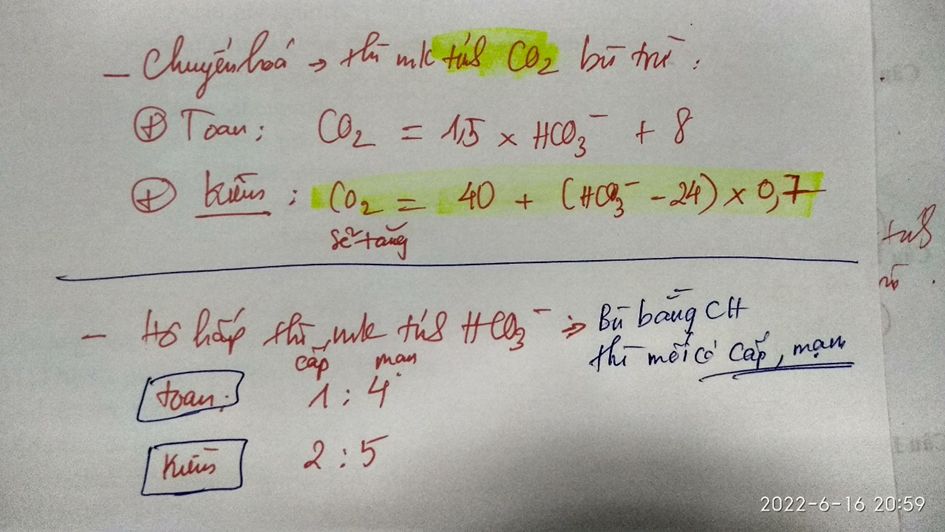 - Chuyển hoá → thì mk tính CO2 bù trừ:
⊕ Toan: CO2 = 1,5 × HCO3⁻ + 8
⊕ Kiềm: CO2 = 40 + (HCO3⁻ - 24) × 0,7
sẽ tăng
- Hô hấp thì mk tính HCO3⁻ ⇒ Bù bằng CH
thì mới có cấp, mạn
cấp mạn
toan: 1 : 4
Kiềm 2 : 5
2022-6-16 20:59